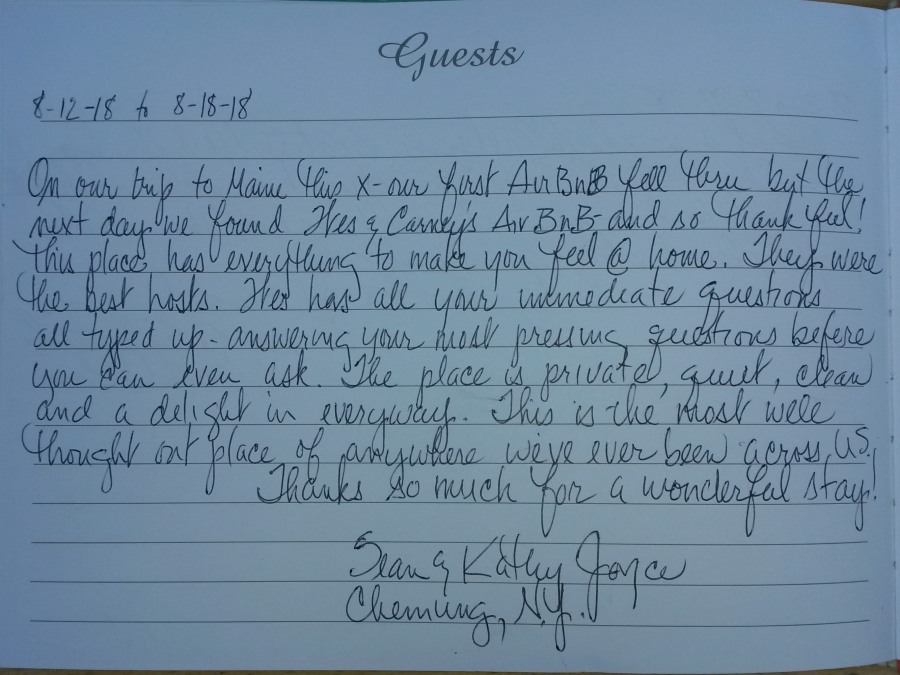 Guests
8-12-18 to 8-18-18
On our trip to Maine this x-our first AirBnB fell thru but the
next day we found Ives & Carney's Air BnB-and so thankful!
this place has everything to make you feel @ home. They were
the best hosts. Ives has all your immediate questions
all typed up-answering your most pressing questions before
you can even ask. The place is private, quiet, clean
and a delight in everyway. This is the most well
thought out place of anywhere we've ever been across US.
Thanks so much for a wonderful stay!
Sean & Kathy Joyce
Chemung, N.Y.